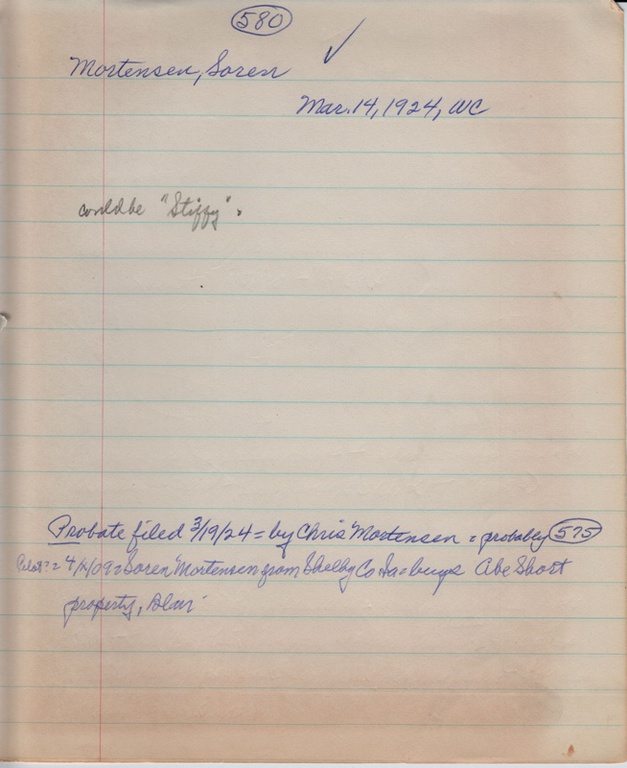 580
Mortensen, Soren
Mar. 14, 1924, WC
could be "Stiffy".
Probate filed 3/19/24 = by Chris Mortensen = probably 575
= Soren Mortensen from Shelby Co Ia = buys Abe Short
property, Blair